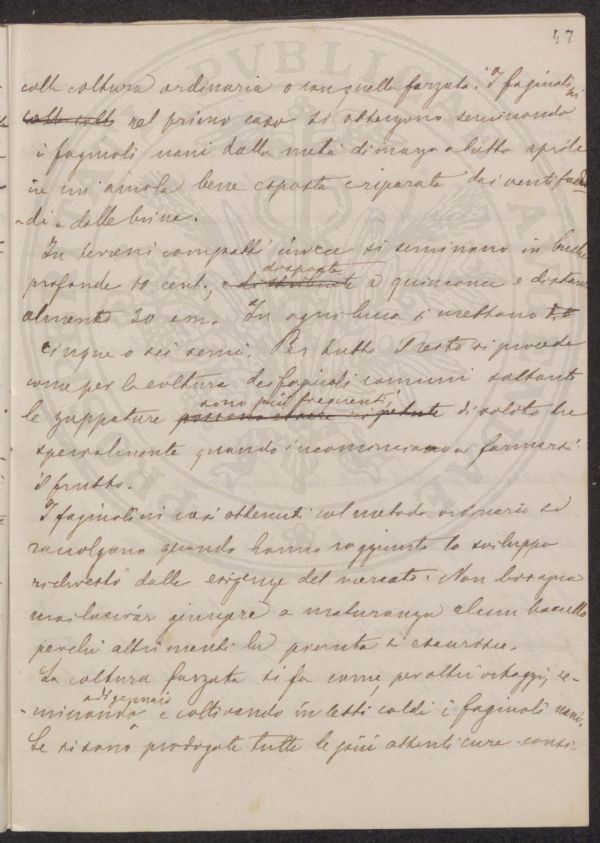 47
colla coltura ordinaria o con quella forzata. I faginoli
ni
nel primo caso si ottengono seminando
i faginoli nani dalla metà di marzo a tutto aprile
in un'aiuola bene esposta e riparata dai venti
di e dalle brine.
In terreni compatti invece si seminano in buche
disposte
profonde 10 cent., e a quinconce e distan
almente 30 cm. In ogni buca si mettono
cinque o sei semi. Per tutto il resto si procede
come per la coltura dei faginoli comuni soltanto
sono più frequenti,
le zappature di solito tre
specialmente quando incominciano a formarsi
il frutto.
I faginolini così ottenuti col metodo ordinario si
raccolgono quando hanno raggiunto lo sviluppo
richiesto dalle esigenze del mercato. Non bisogna
mai lasciar giungere a maturanza alcun baccello
perchè altrimenti la pianta si esaurisce.
La coltura forzata si fa come per altri ortaggi, se-
a di gennaio
minando e coltivando in letti caldi i faginoli nani.
Se si sono prodogate tutte le più attenti cure consi-